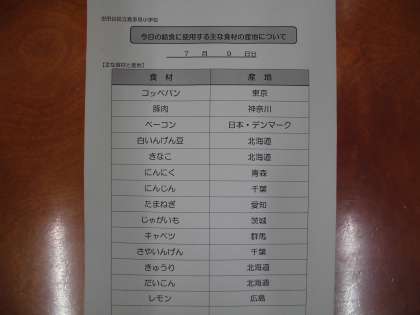 今日の給食に使用する主な食材の産地について
7 月 9 日
【主な食材と産地】
食 材 産 地
コッペパン 東京
豚肉 神奈川
ベーコン 日本・デンマーク
白いんげん豆 北海道
きなこ 北海道
にんにく 青森
にんじん 千葉
たまねぎ 愛知
じゃがいも 茨城
キャベツ 群馬
さやいんげん 千葉
きゅうり 北海道
だいこん 北海道
レモン 広島